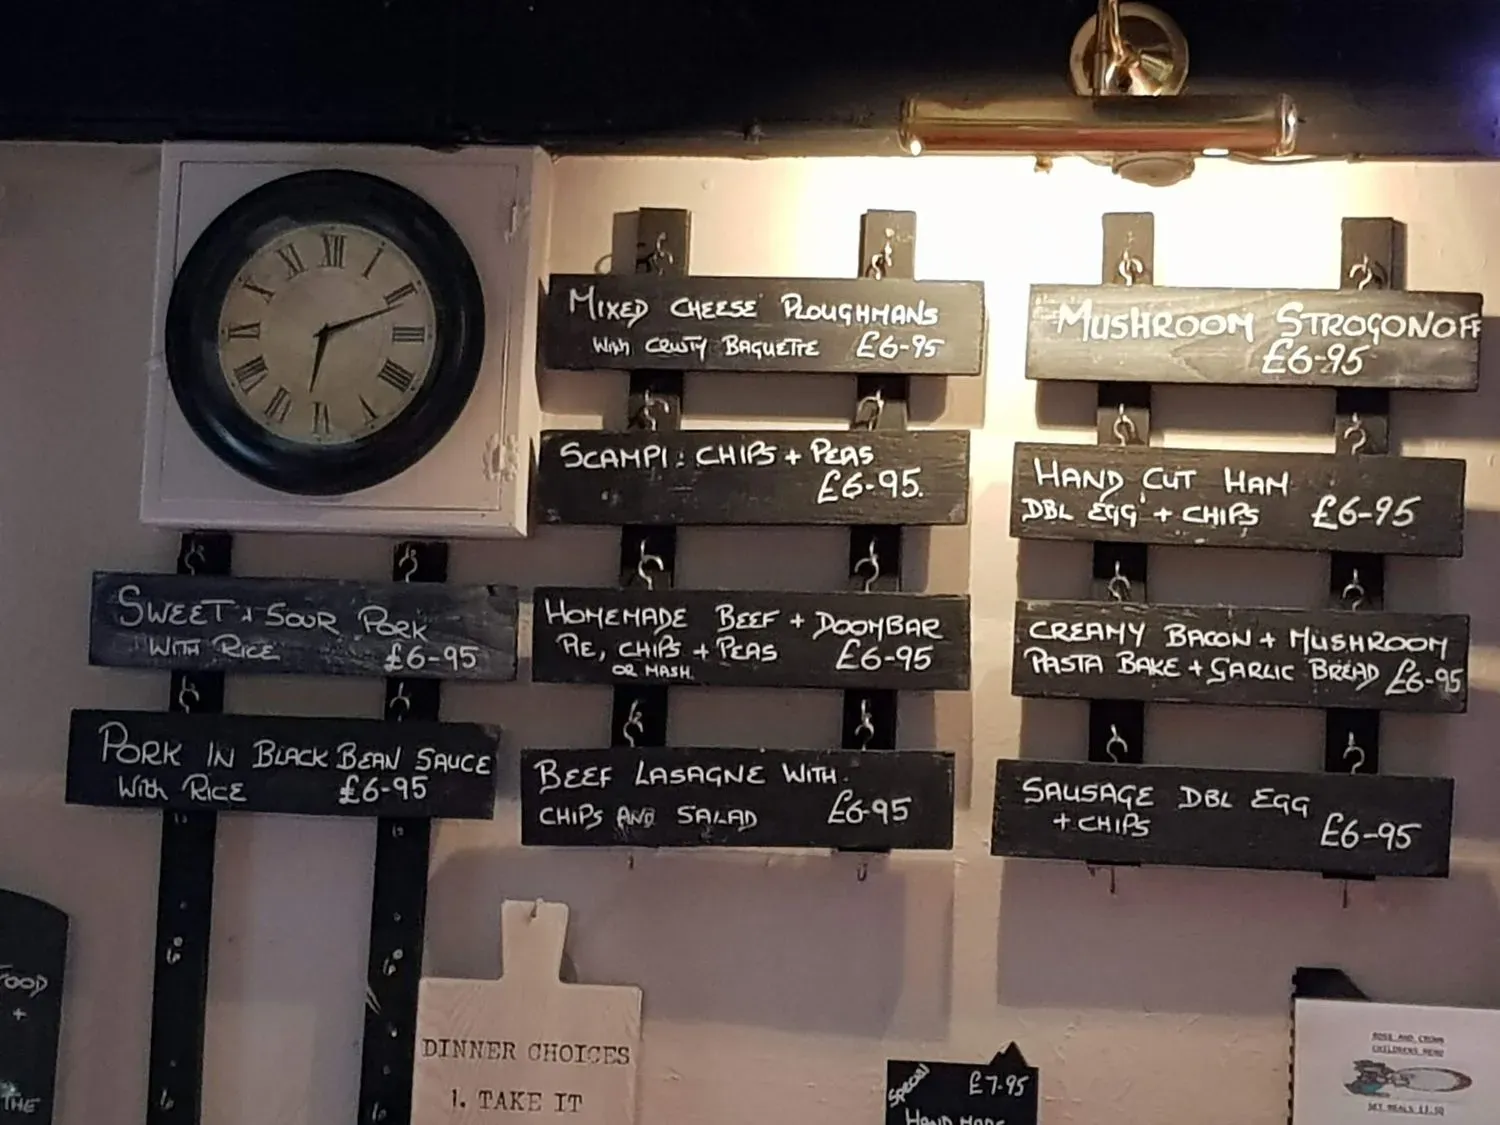 XII
I
II
III
IIII
V
VI
VII
VIII
IX
X
XI
MIXED CHEESE PLOUGHMANS
With CRUSTY BAGUETTE £6-95
SCAMPI: CHIPS + PEAS
£6-95.
HOMEMADE BEEF + DOOMBAR
PIE, CHIPS + PEAS £6-95
OR MASH.
BEEF LASAGNE WITH.
CHIPS AND SALAD £6-95
MUSHROOM STROGONOFF
£6-95
HAND CUT HAM
DBL EGG + CHIPS £6-95
CREAMY BACON + MUSHROOM
PASTA BAKE + GARLIC BREAD £6-95
SAUSAGE DBL EGG
+ CHIPS £6-95
SWEET + SOUR PORK
WITH RICE £6-95
PORK IN BLACK BEAN SAUCE
With RICE £6-95
FOOD
+
THE
DINNER CHOICES
1. TAKE IT
Special £7-95
HAND MADE
ROSE AND CROWN
CHILDRENS MENU
SET MEALS £3.50